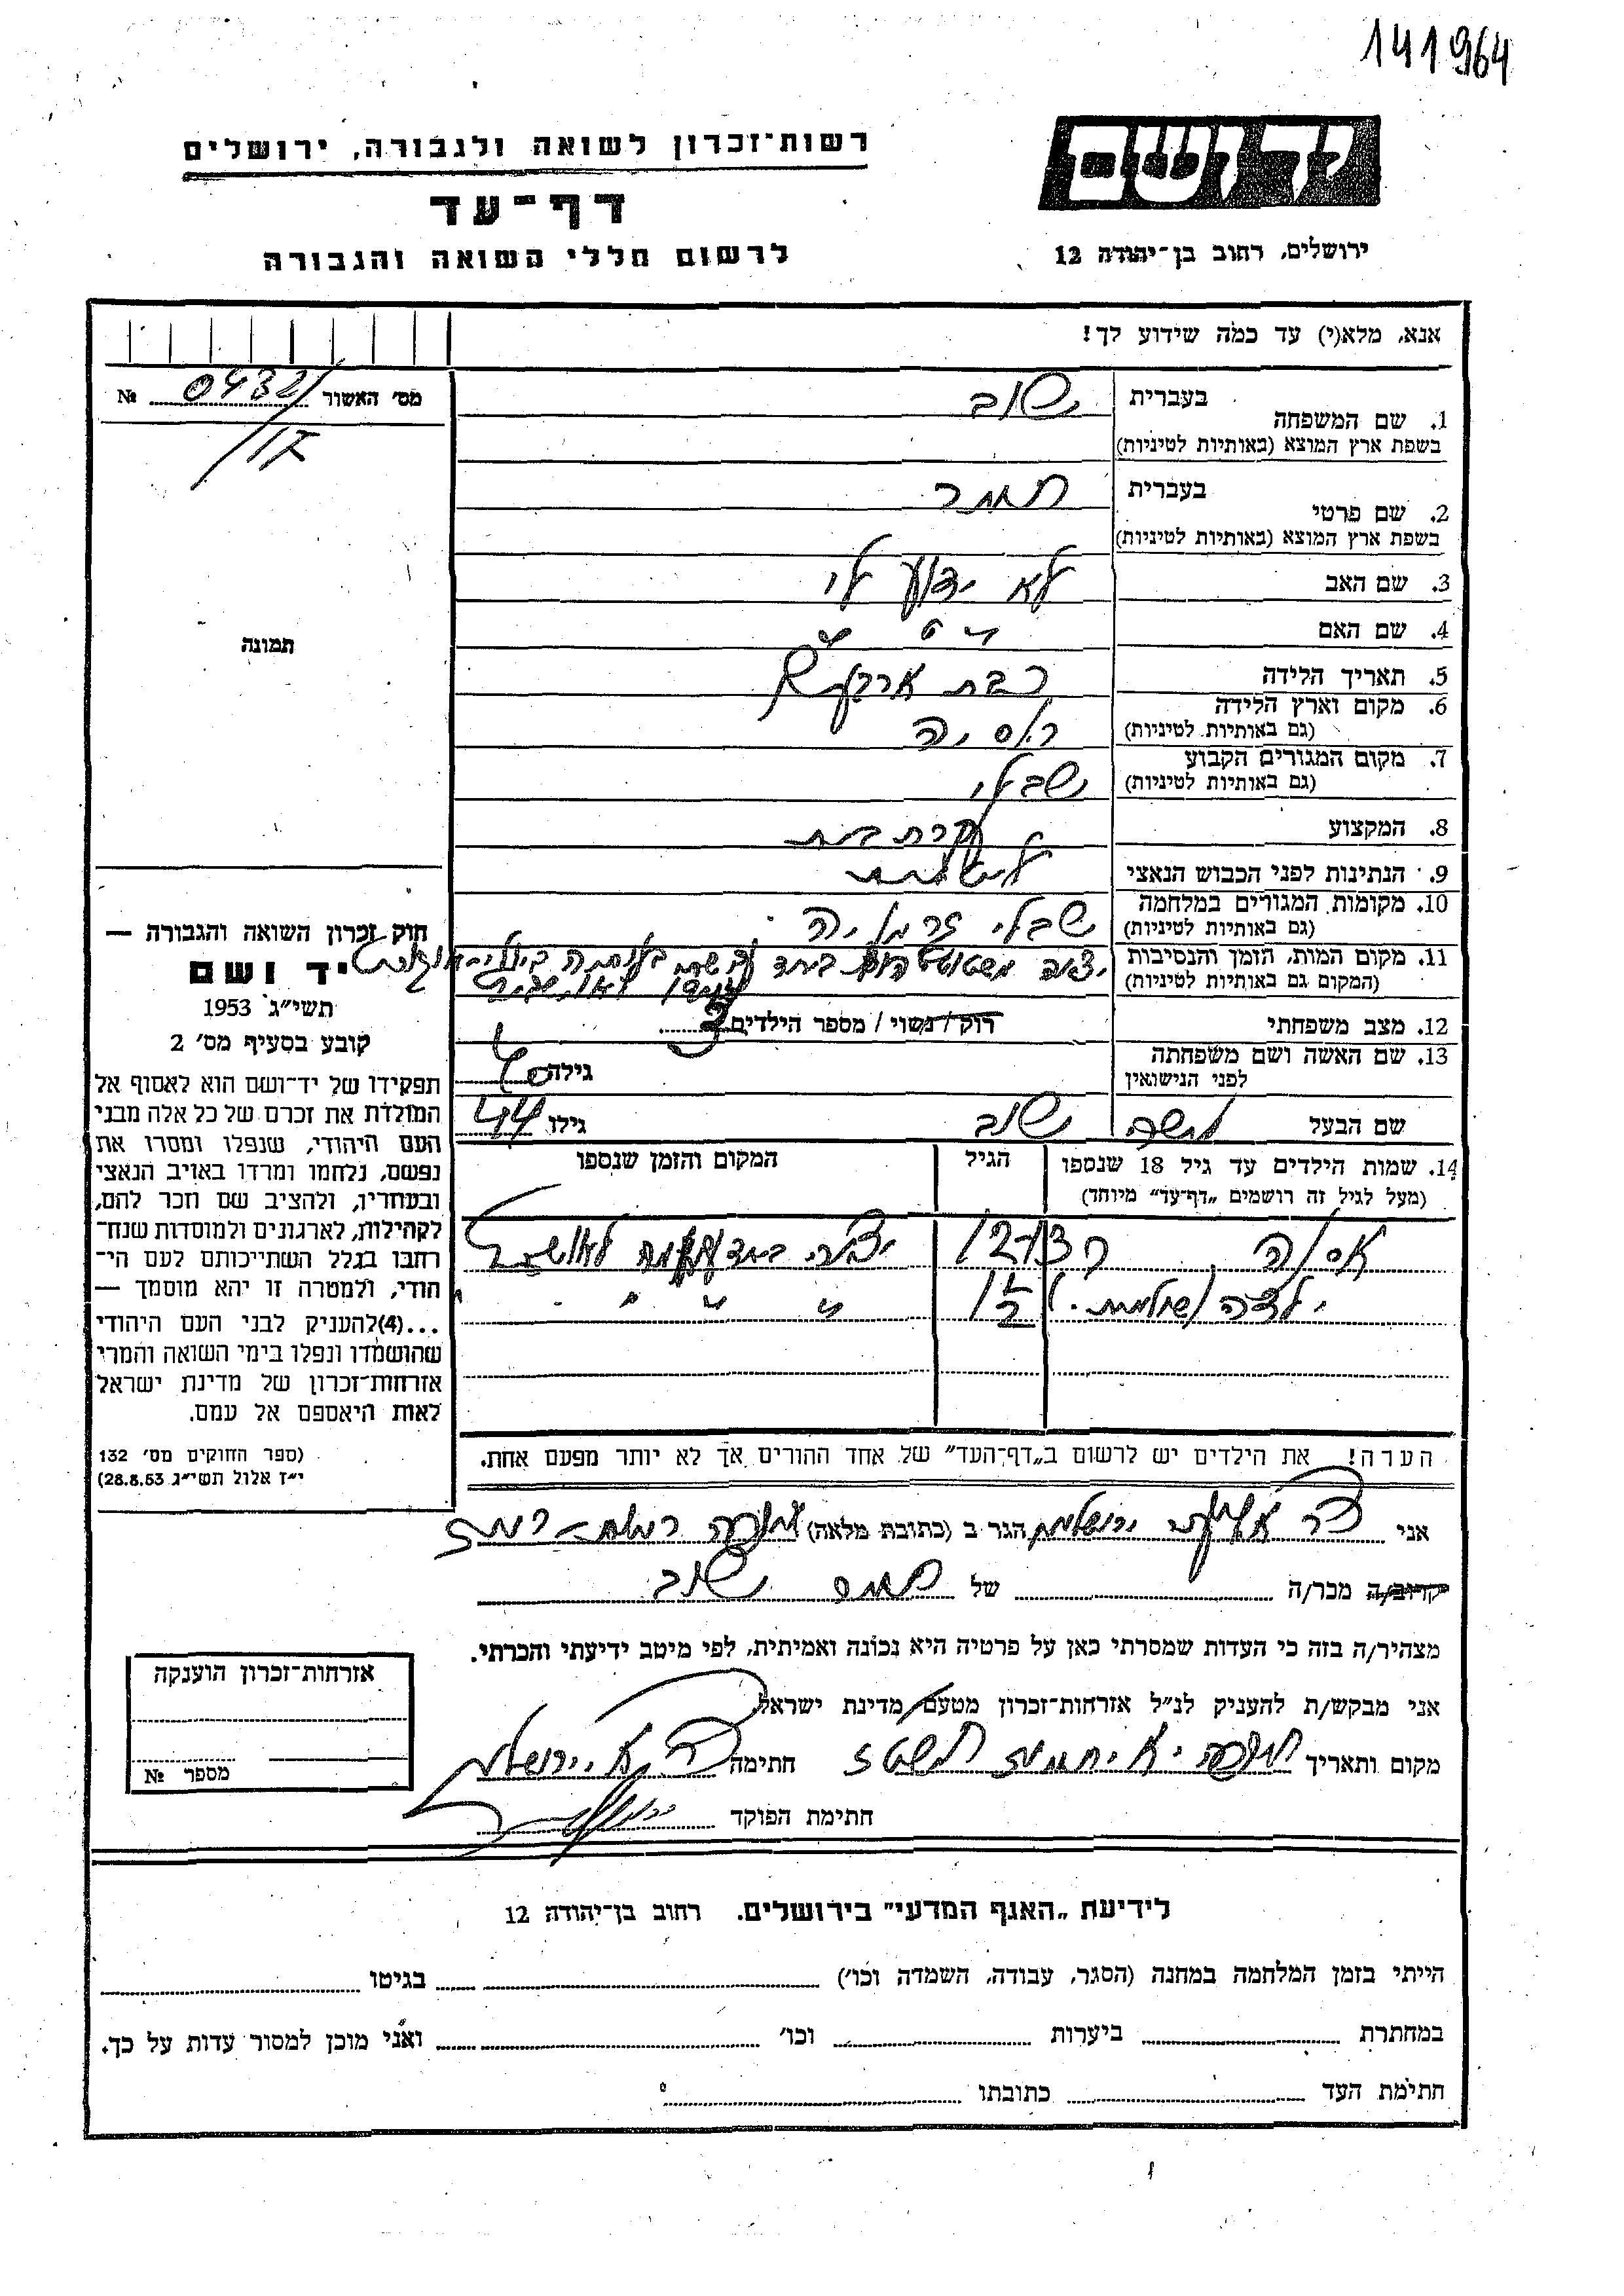 141964
יד ושם
רשות־זכרון לשואה ולגבורה, ירושלים
דף־עד
לרשום חללי השואה והגבורה
ירושלים, רחוב בן־יהודה 12
אנא, מלא(י) עד כמה שידוע לך!
מס׳ האשור № 0432/
17
1. שם המשפחה בעברית שוב
בשפת ארץ המוצא (באותיות לטיניות)
2. שם פרטי בעברית תמר
בשפת ארץ המוצא (באותיות לטיניות)
3. שם האב לא ידוע לי
4. שם האם " " "
5. תאריך הלידה כבת ארבעים
6. מקום וארץ הלידה רוסיה
(גם באותיות לטיניות)
7. מקום המגורים הקבוע שבלי
(גם באותיות לטיניות)
8. המקצוע עקרת בית
9. הנתינות לפני הכבוש הנאצי ליטאית
10. מקומות המגורים במלחמה שבלי גרמניה
(גם באותיות לטיניות)
11. מקום המות, הזמן והנסיבות
(המקום גם באותיות לטיניות)
12. מצב משפחתי רוק / נשוי / מספר הילדים 2
13. שם האשה ושם משפחתה
לפני הנישואין
גילה 40
שם הבעל משה שוב גילו 44
14. שמות הילדים עד גיל 18 שנספו הגיל המקום והזמן שנספו
(מעל לגיל זה רושמים „דף־עד” מיוחד)
12
ילדה (שולמית) " " "
תמונה
חוק זכרון השואה והגבורה —
יד ושם
תשי״ג 1953
קובע בסעיף מס׳ 2
תפקידו של יד־ושם הוא לאסוף אל
המולדת את זכרם של כל אלה מבני
העם היהודי, שנפלו ומסרו את
נפשם, נלחמו ומרדו באויב הנאצי
ובעוזריו, ולהציב שם וזכר להם,
לקהילות, לארגונים ולמוסדות שנח־
רחבו בגלל השתייכותם לעם הי־
הודי, ולמטרה זו יהא מוסמך —
...(4)להעניק לבני העם היהודי
שהושמדו ונפלו בימי השואה והמרי
אזרחות־זכרון של מדינת ישראל
לאות היאספם אל עמם.
(ספר החוקים מס׳ 132
י״ז אלול תשי״ג 28.8.53)
הערה! את הילדים יש לרשום ב„דף־העד” של אחד ההורים אך לא יותר מפעם אחת.
אני ירושלמי הגר ב (כתובת מלאה) חדרה
קרוב/ה מכר/ה של תמר שוב
מצהיר/ה בזה כי העדות שמסרתי כאן על פרטיה היא נכונה ואמיתית, לפי מיטב ידיעתי והכרתי.
אני מבקש/ת להעניק לנ״ל אזרחות־זכרון מטעם מדינת ישראל
מקום ותאריך חדרה תמוז חתימה א. ירושלמי
חתימת הפוקד
אזרחות־זכרון הוענקה
מספר №
לידיעת „האגף המדעי” בירושלים. רחוב בן־יהודה 12
הייתי בזמן המלחמה במחנה (הסגר, עבודה, השמדה וכו׳) בגיטו
במחתרת ביערות וכו׳ ואני מוכן למסור עדות על כך.
חתימת העד כתובתו